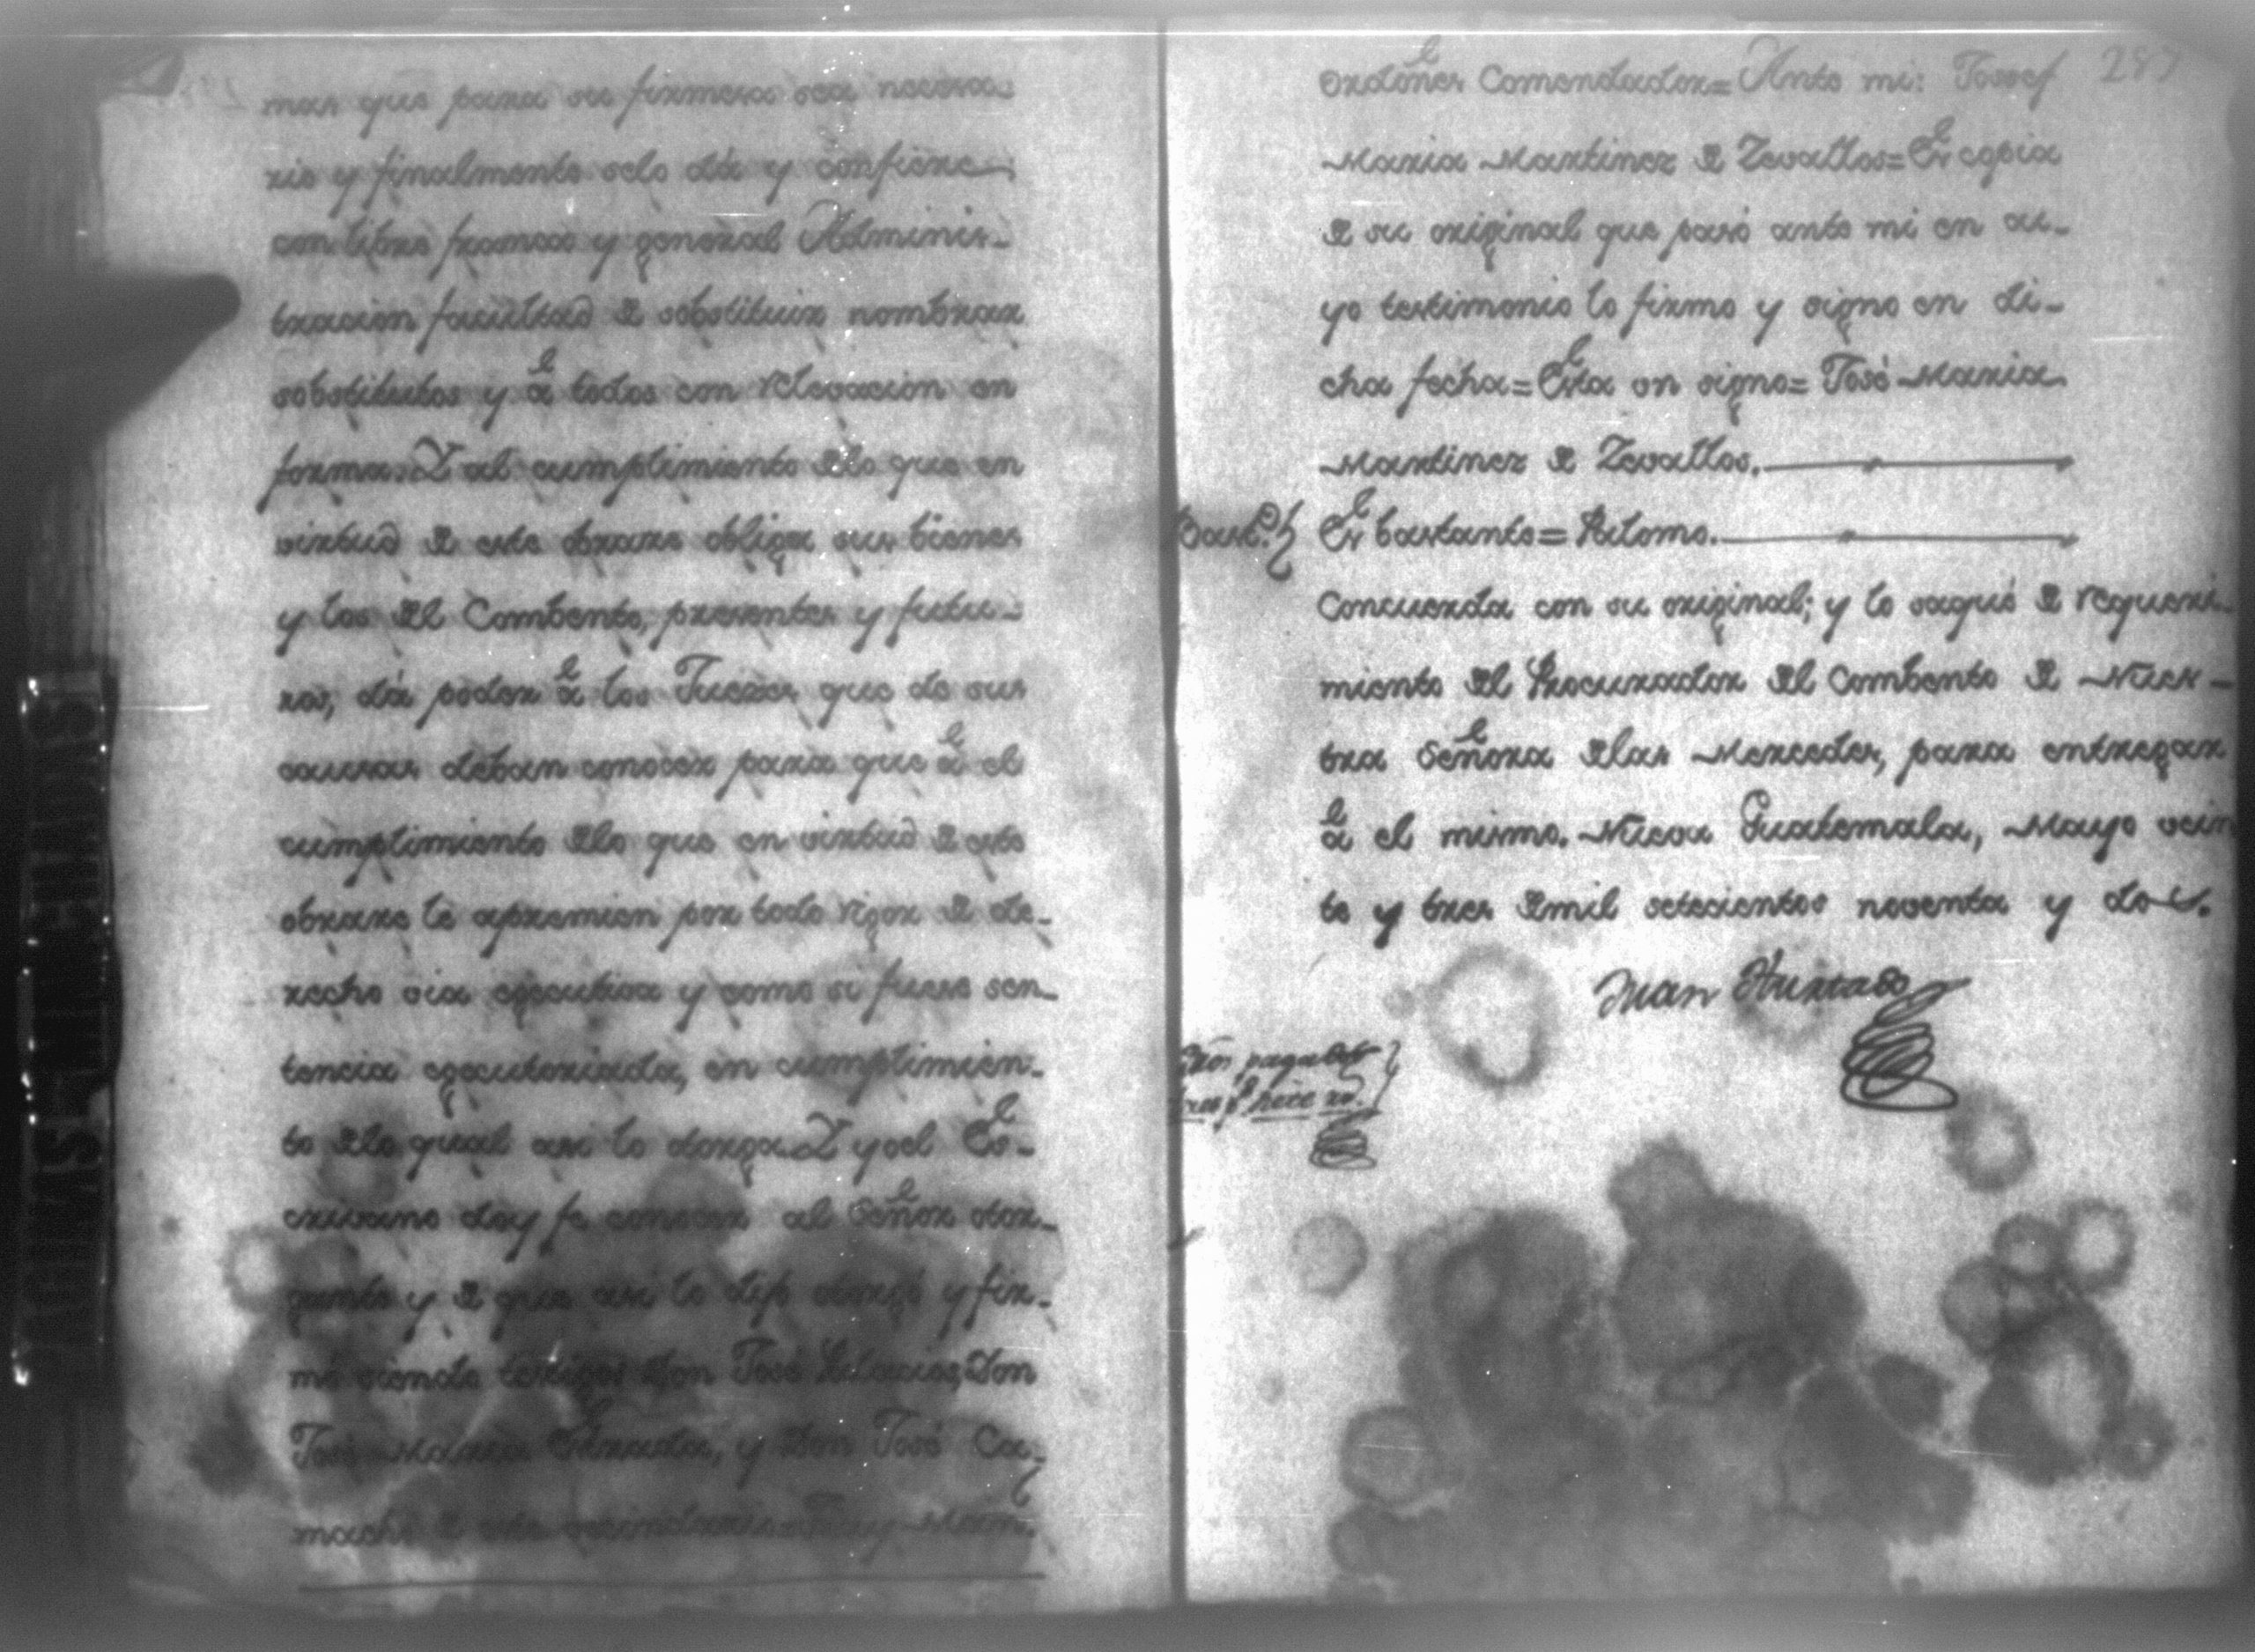 mas que para su firmesa sea necesa-
rio y finalmente selo dá y confiere
con libre franca y general Adminis-
tracion facultad de sobstituir nombrar
sobstitutos y à todos con relevacion en
forma. Y al cumplimiento delo que en
virtud de este obrare obliga sus bienes
y los del Combento, presentes y futu-
ros, dá poder à los Juezes que de sus
causas deban conocer para que à el
cumplimiento delo que en virtud de este
obrare le apremien por todo rigor de de-
recho via egecutiva y como si fuese sen-
tencia egecutoriada, en cumplimien-
to delo qual asi lo otorga. Y yo el Es-
crivano doy fe conocer al Señor otor-
gante y de que asi lo dijo otorgó y fir-
mó siendo testigos Don José Palacios, Don
José Maria Estrada, y Don José Ca-
macho de este vecindario= Fray
Ordoñes Comendador= Ante mi: Josef 287
Maria Martinez de Zevallos= Es copia
de su original que pasó ante mi en cu-
yo testimonio lo firmo y signo en di-
cha fecha= Está un signo= José Maria
Martinez de Zevallos.
Bast.e Es bastante= Palomo.
Concuerda con su original; y lo saqué de requeri-
miento del Procurador del Combento de Nues-
tra Señora delas Mercedes, para entregar
à el mismo. Nueva Guatemala, Mayo vein
te y tres de mil setecientos noventa y dos.
Juan Hurtado